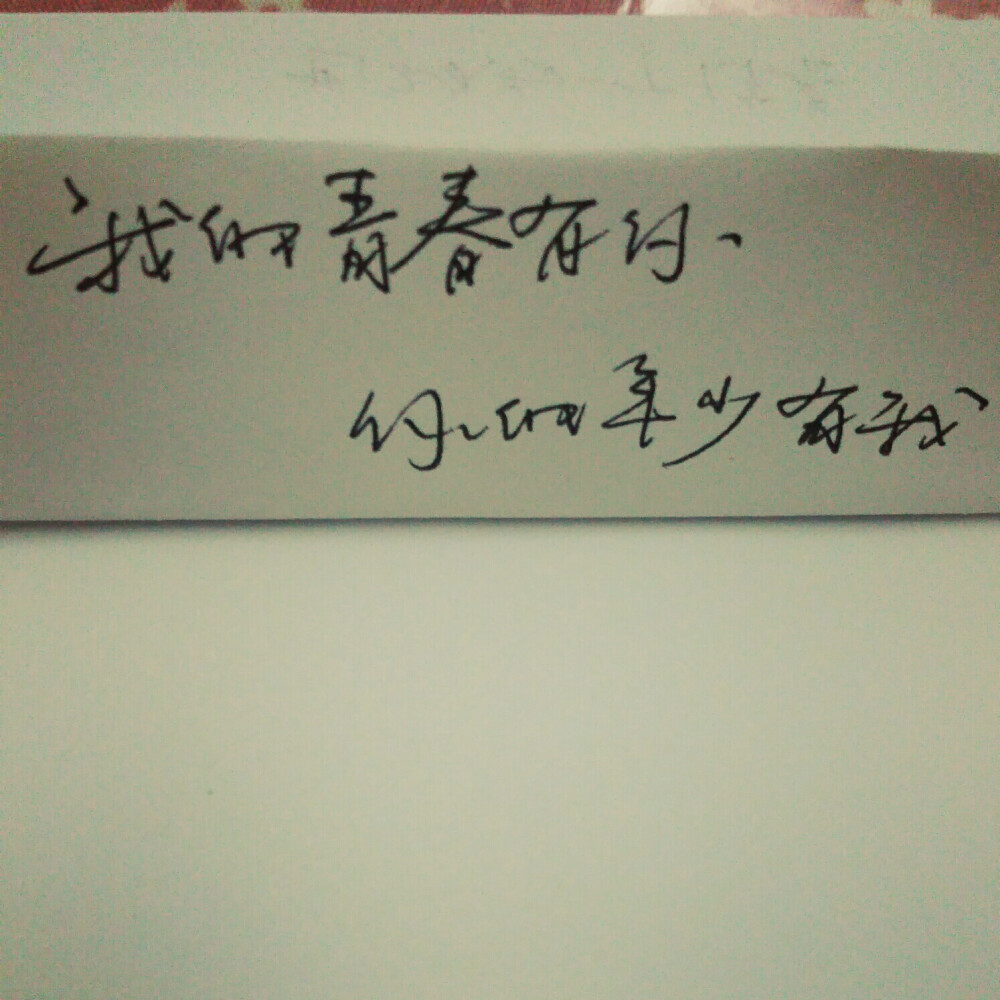 我的青春有你、
你的年少有我